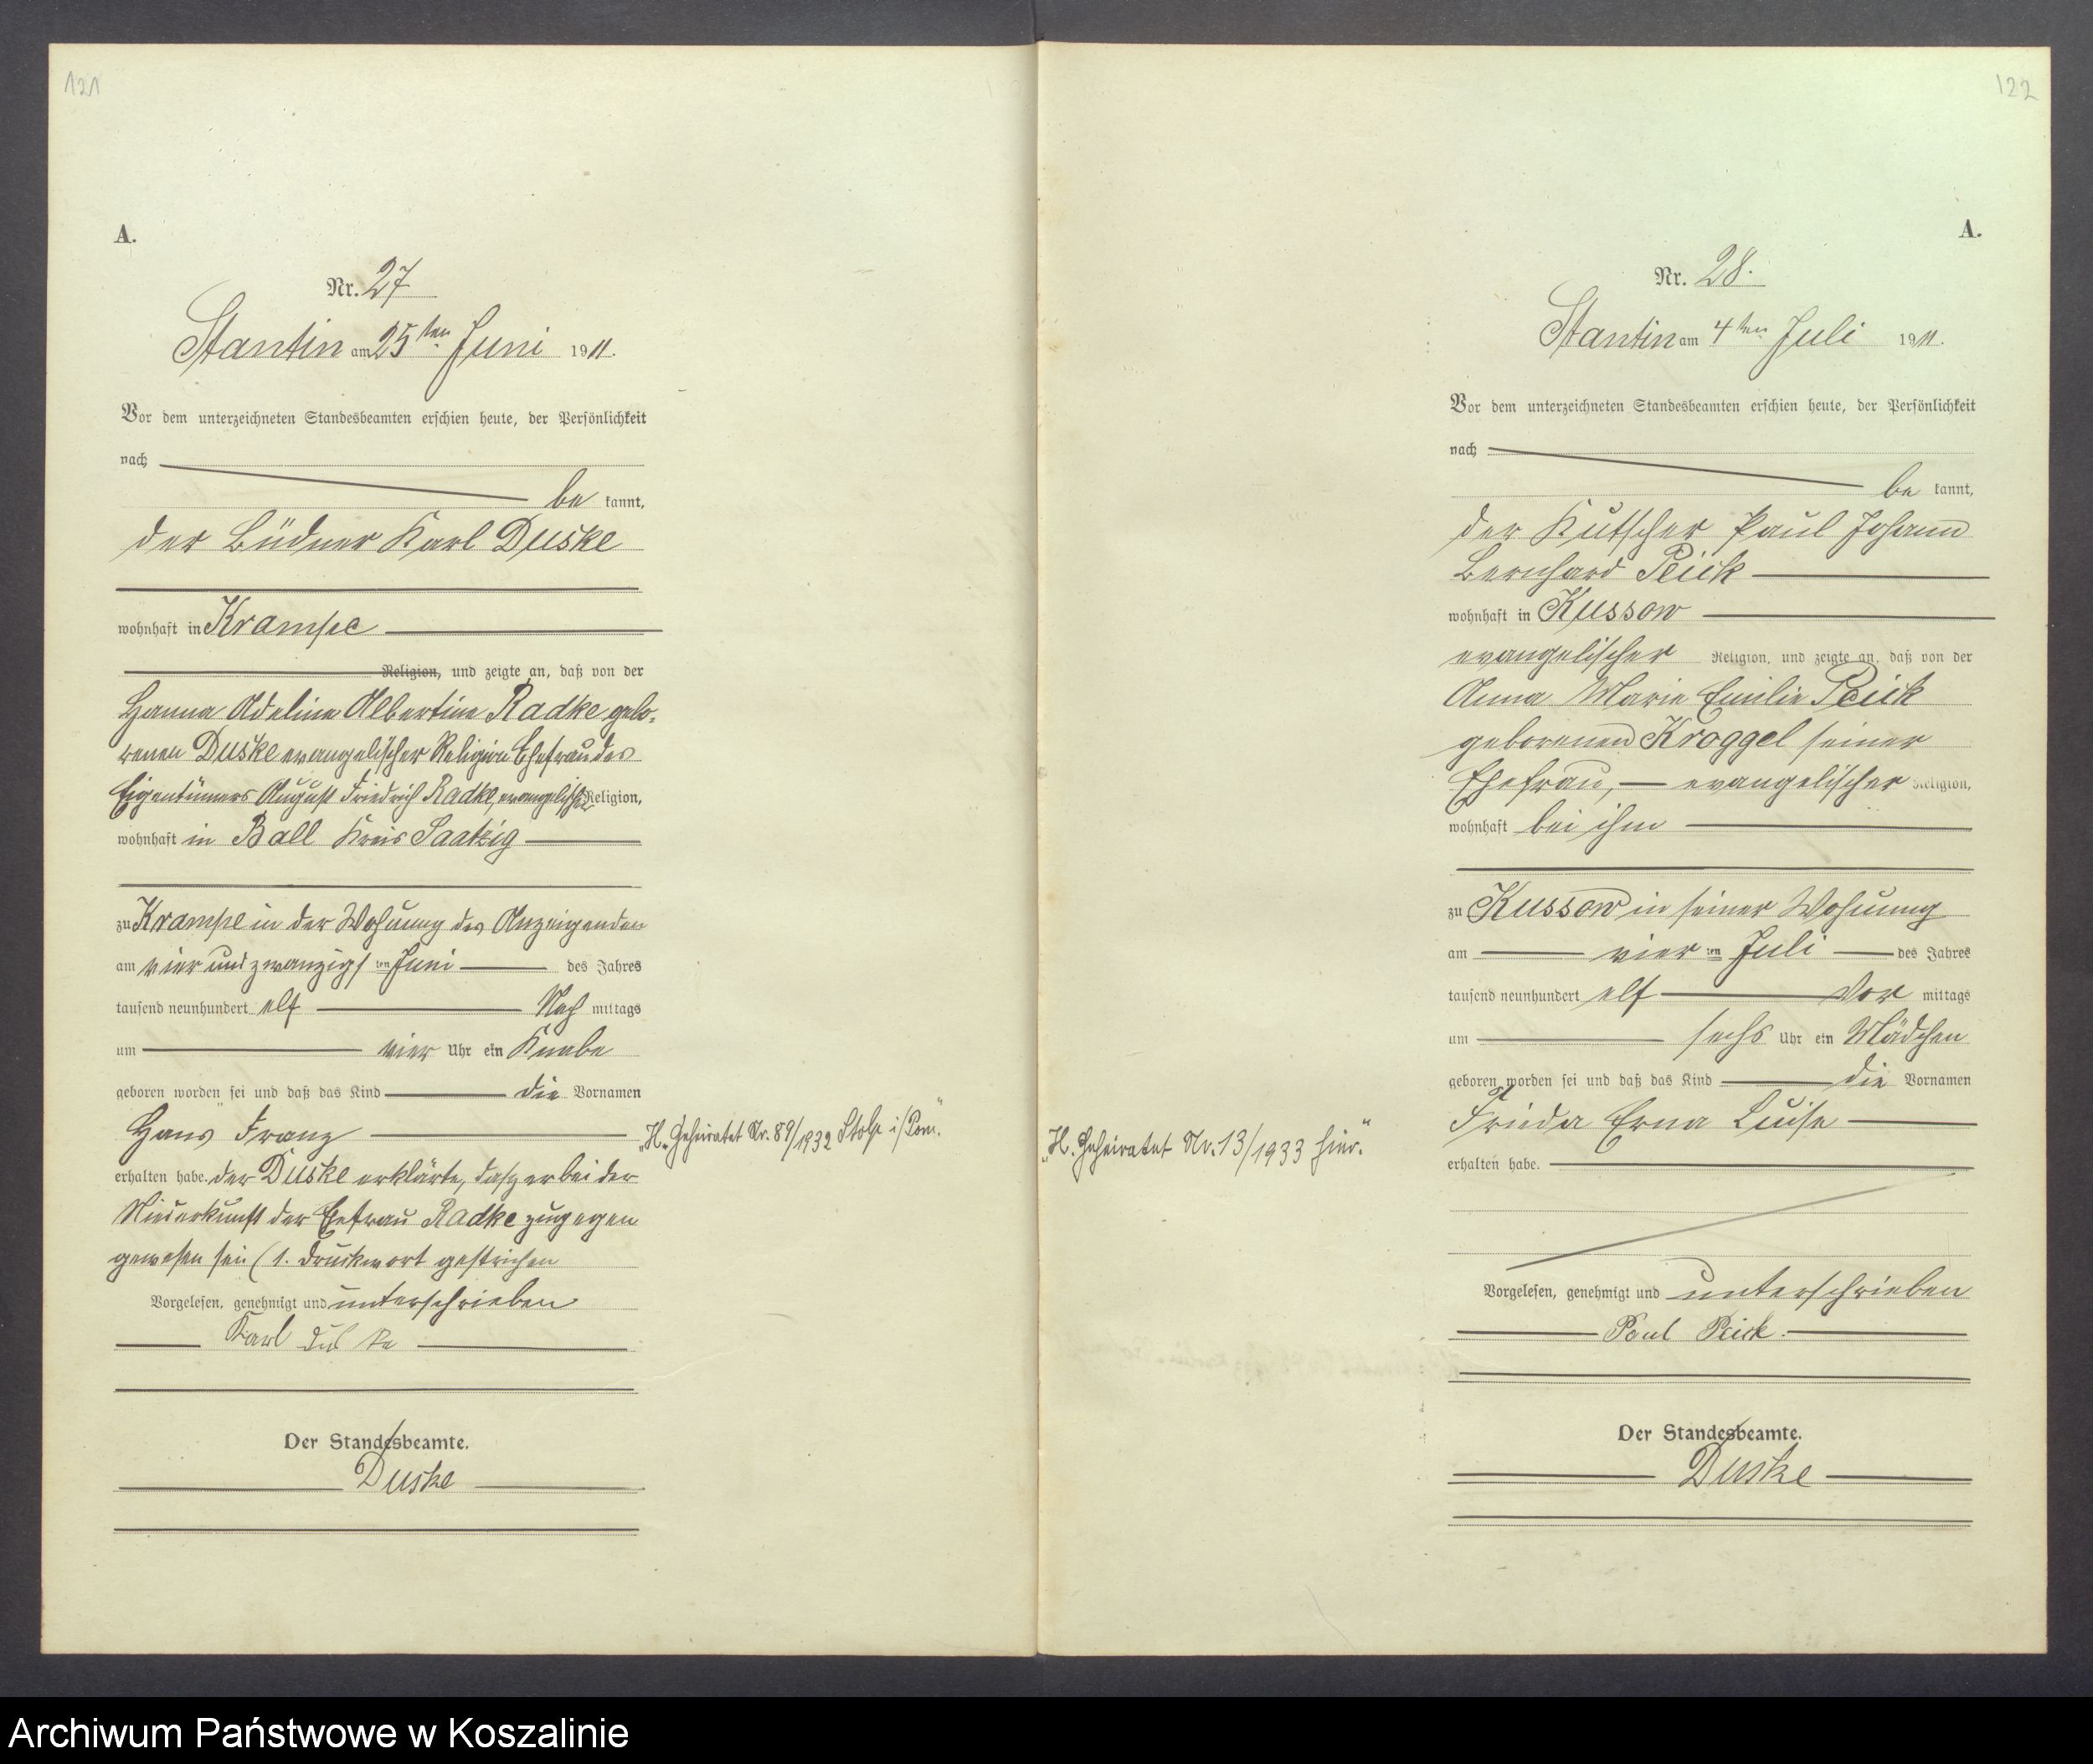 121
A.
Nr. 27
Stantin am 25ten Juni 1911.
Vor dem unterzeichneten Standesbeamten erschien heute, der Persönlichkeit
nach
be kannt,
der Büdner Karl Duske
wohnhaft in Krampe
Religion, und zeigte an, daß von der
Hanna Adeline Albertine Radke gebo-
renen Duske evangelischer Religion Ehefrau des
Eigentümers August Friedrich Radke, evangelischer Religion,
wohnhaft in Ball Kreis Saatzig
zu Krampe in der Wohnung des Anzeigenden
am vier und zwanzigsten Juni des Jahres
tausend neunhundert elf Nach mittags
um vier Uhr ein Knabe
geboren worden sei und daß das Kind die Vornamen
Hans Franz
erhalten habe. der Duske erklärte, dasz er bei der
Niederkunft der Ehefrau Radke zugegen
gewesen sei (1. Druckwort gestrichen
Vorgelesen, genehmigt und unterschrieben
Karl Duske
Der Standesbeamte.
Duske
„H. Geheiratet Nr. 89/1932 Stolp i/Pom.“
122
A.
Nr. 28.
Stantin am 4ten Juli 1911.
Vor dem unterzeichneten Standesbeamten erschien heute, der Persönlichkeit
nach
be kannt,
der Kutscher Paul Johann
Bernhard Peick
wohnhaft in Kussow
evangelischer Religion, und zeigte an, daß von der
Anna Marie Emilie Peick
geborenen Kroggel seiner
Ehefrau, — evangelischer Religion,
wohnhaft bei ihm
zu Kussow in seiner Wohnung
am vier ten Juli des Jahres
tausend neunhundert elf Vor mittags
um sechs Uhr ein Mädchen
geboren worden sei und daß das Kind die Vornamen
Frieda Erna Luise
erhalten habe.
Vorgelesen, genehmigt und unterschrieben
Paul Peick.
Der Standesbeamte.
Duske
„H. Geheiratet Nr. 13/1933 hier.“
Archiwum Państwowe w Koszalinie